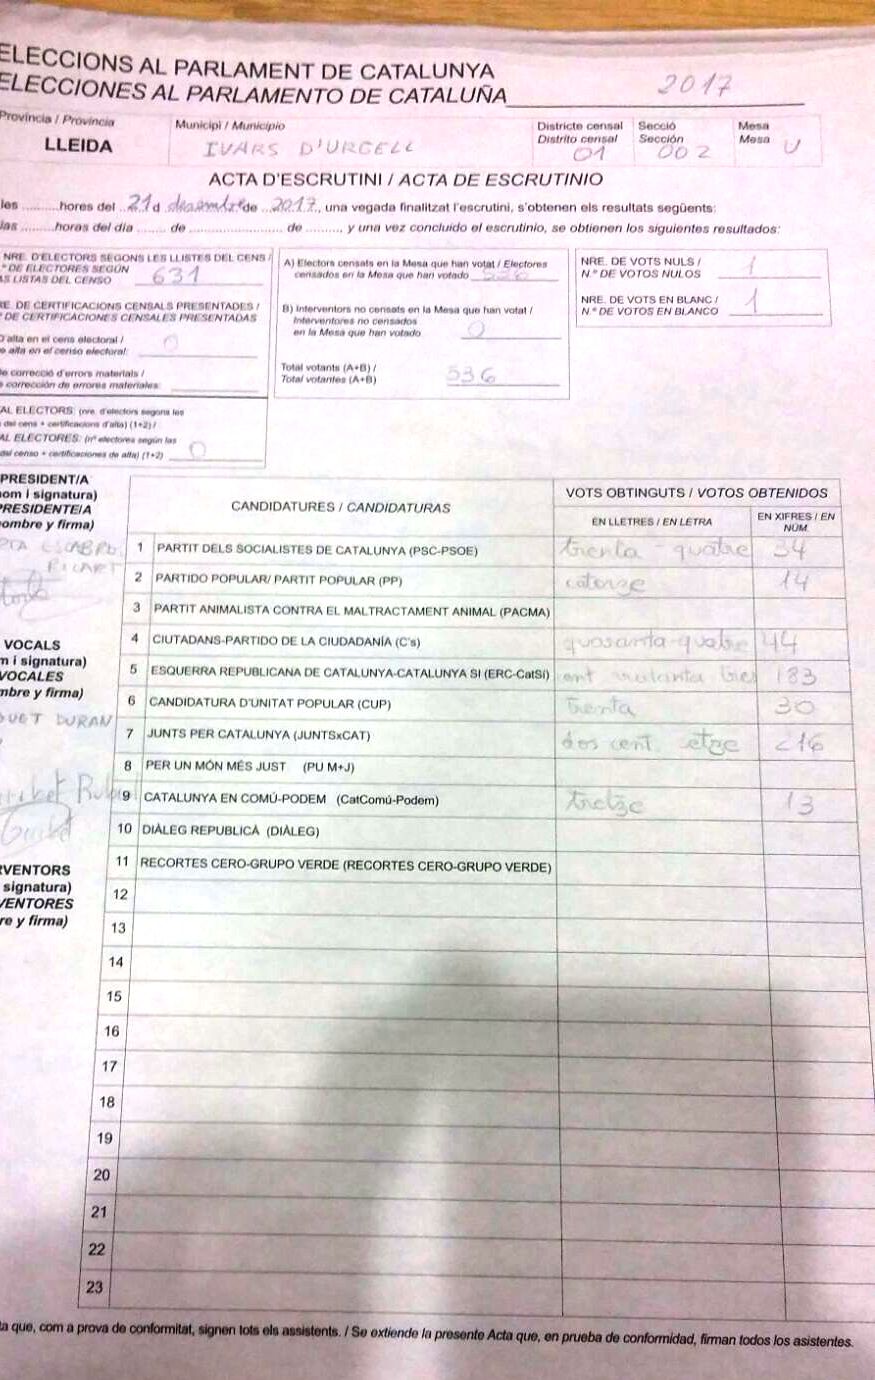 ELECCIONS AL PARLAMENT DE CATALUNYA
ELECCIONES AL PARLAMENTO DE CATALUÑA 2017
Provincia / Provincia Municipi / Municipio Districte censal Secció Mesa
LLEIDA IVARS D'URGELL Distrito censal 01 Sección 002 Mesa U
ACTA D'ESCRUTINI / ACTA DE ESCRUTINIO
les ......... hores del 21 d desembre de 2017, una vegada finalitzat l'escrutini, s'obtenen els resultats següents:
las ......... horas del día ....... de ........................ de ........., y una vez concluido el escrutinio, se obtienen los siguientes resultados:
NRE. D'ELECTORS SEGONS LES LLISTES DEL CENS /
º DE ELECTORES SEGÚN
AS LISTAS DEL CENSO 631
RE. DE CERTIFICACIONS CENSALS PRESENTADES /
DE CERTIFICACIONES CENSALES PRESENTADAS
D'alta en el cens electoral /
e alta en el censo electoral: 0
e correcció d'errors materials /
e corrección de errores materiales:
AL ELECTORS: (nre. d'electors segons les
del cens + certificacions d'alta) (1+2) /
AL ELECTORES: (nº electores según las
del censo + certificaciones de alta) (1+2) 0
A) Electors censats en la Mesa que han votat / Electores
censados en la Mesa que han votado 536
B) Interventors no censats en la Mesa que han votat /
Interventores no censados
en la Mesa que han votado 0
Total votants (A+B) /
Total votantes (A+B) 536
NRE. DE VOTS NULS /
N.º DE VOTOS NULOS 1
NRE. DE VOTS EN BLANC /
N.º DE VOTOS EN BLANCO 1
PRESIDENT/A
nom i signatura)
PRESIDENTE/A
ombre y firma)
RICART
VOCALS
m i signatura)
VOCALES
mbre y firma)
DURAN
RVENTORS
signatura)
VENTORES
re y firma)
CANDIDATURES / CANDIDATURAS VOTS OBTINGUTS / VOTOS OBTENIDOS
EN LLETRES / EN LETRA EN XIFRES / EN NÚM.
1 PARTIT DELS SOCIALISTES DE CATALUNYA (PSC-PSOE) trenta-quatre 34
2 PARTIDO POPULAR/ PARTIT POPULAR (PP) catorze 14
3 PARTIT ANIMALISTA CONTRA EL MALTRACTAMENT ANIMAL (PACMA)
4 CIUTADANS-PARTIDO DE LA CIUDADANÍA (C's) quaranta-quatre 44
5 ESQUERRA REPUBLICANA DE CATALUNYA-CATALUNYA SI (ERC-CatSí) cent vuitanta tres 183
6 CANDIDATURA D'UNITAT POPULAR (CUP) trenta 30
7 JUNTS PER CATALUNYA (JUNTSxCAT) dos cent setze 216
8 PER UN MÓN MÉS JUST (PU M+J)
9 CATALUNYA EN COMÚ-PODEM (CatComú-Podem) tretze 13
10 DIÀLEG REPUBLICÀ (DIÀLEG)
11 RECORTES CERO-GRUPO VERDE (RECORTES CERO-GRUPO VERDE)
12
13
14
15
16
17
18
19
20
21
22
23
ta que, com a prova de conformitat, signen tots els assistents. / Se extiende la presente Acta que, en prueba de conformidad, firman todos los asistentes.